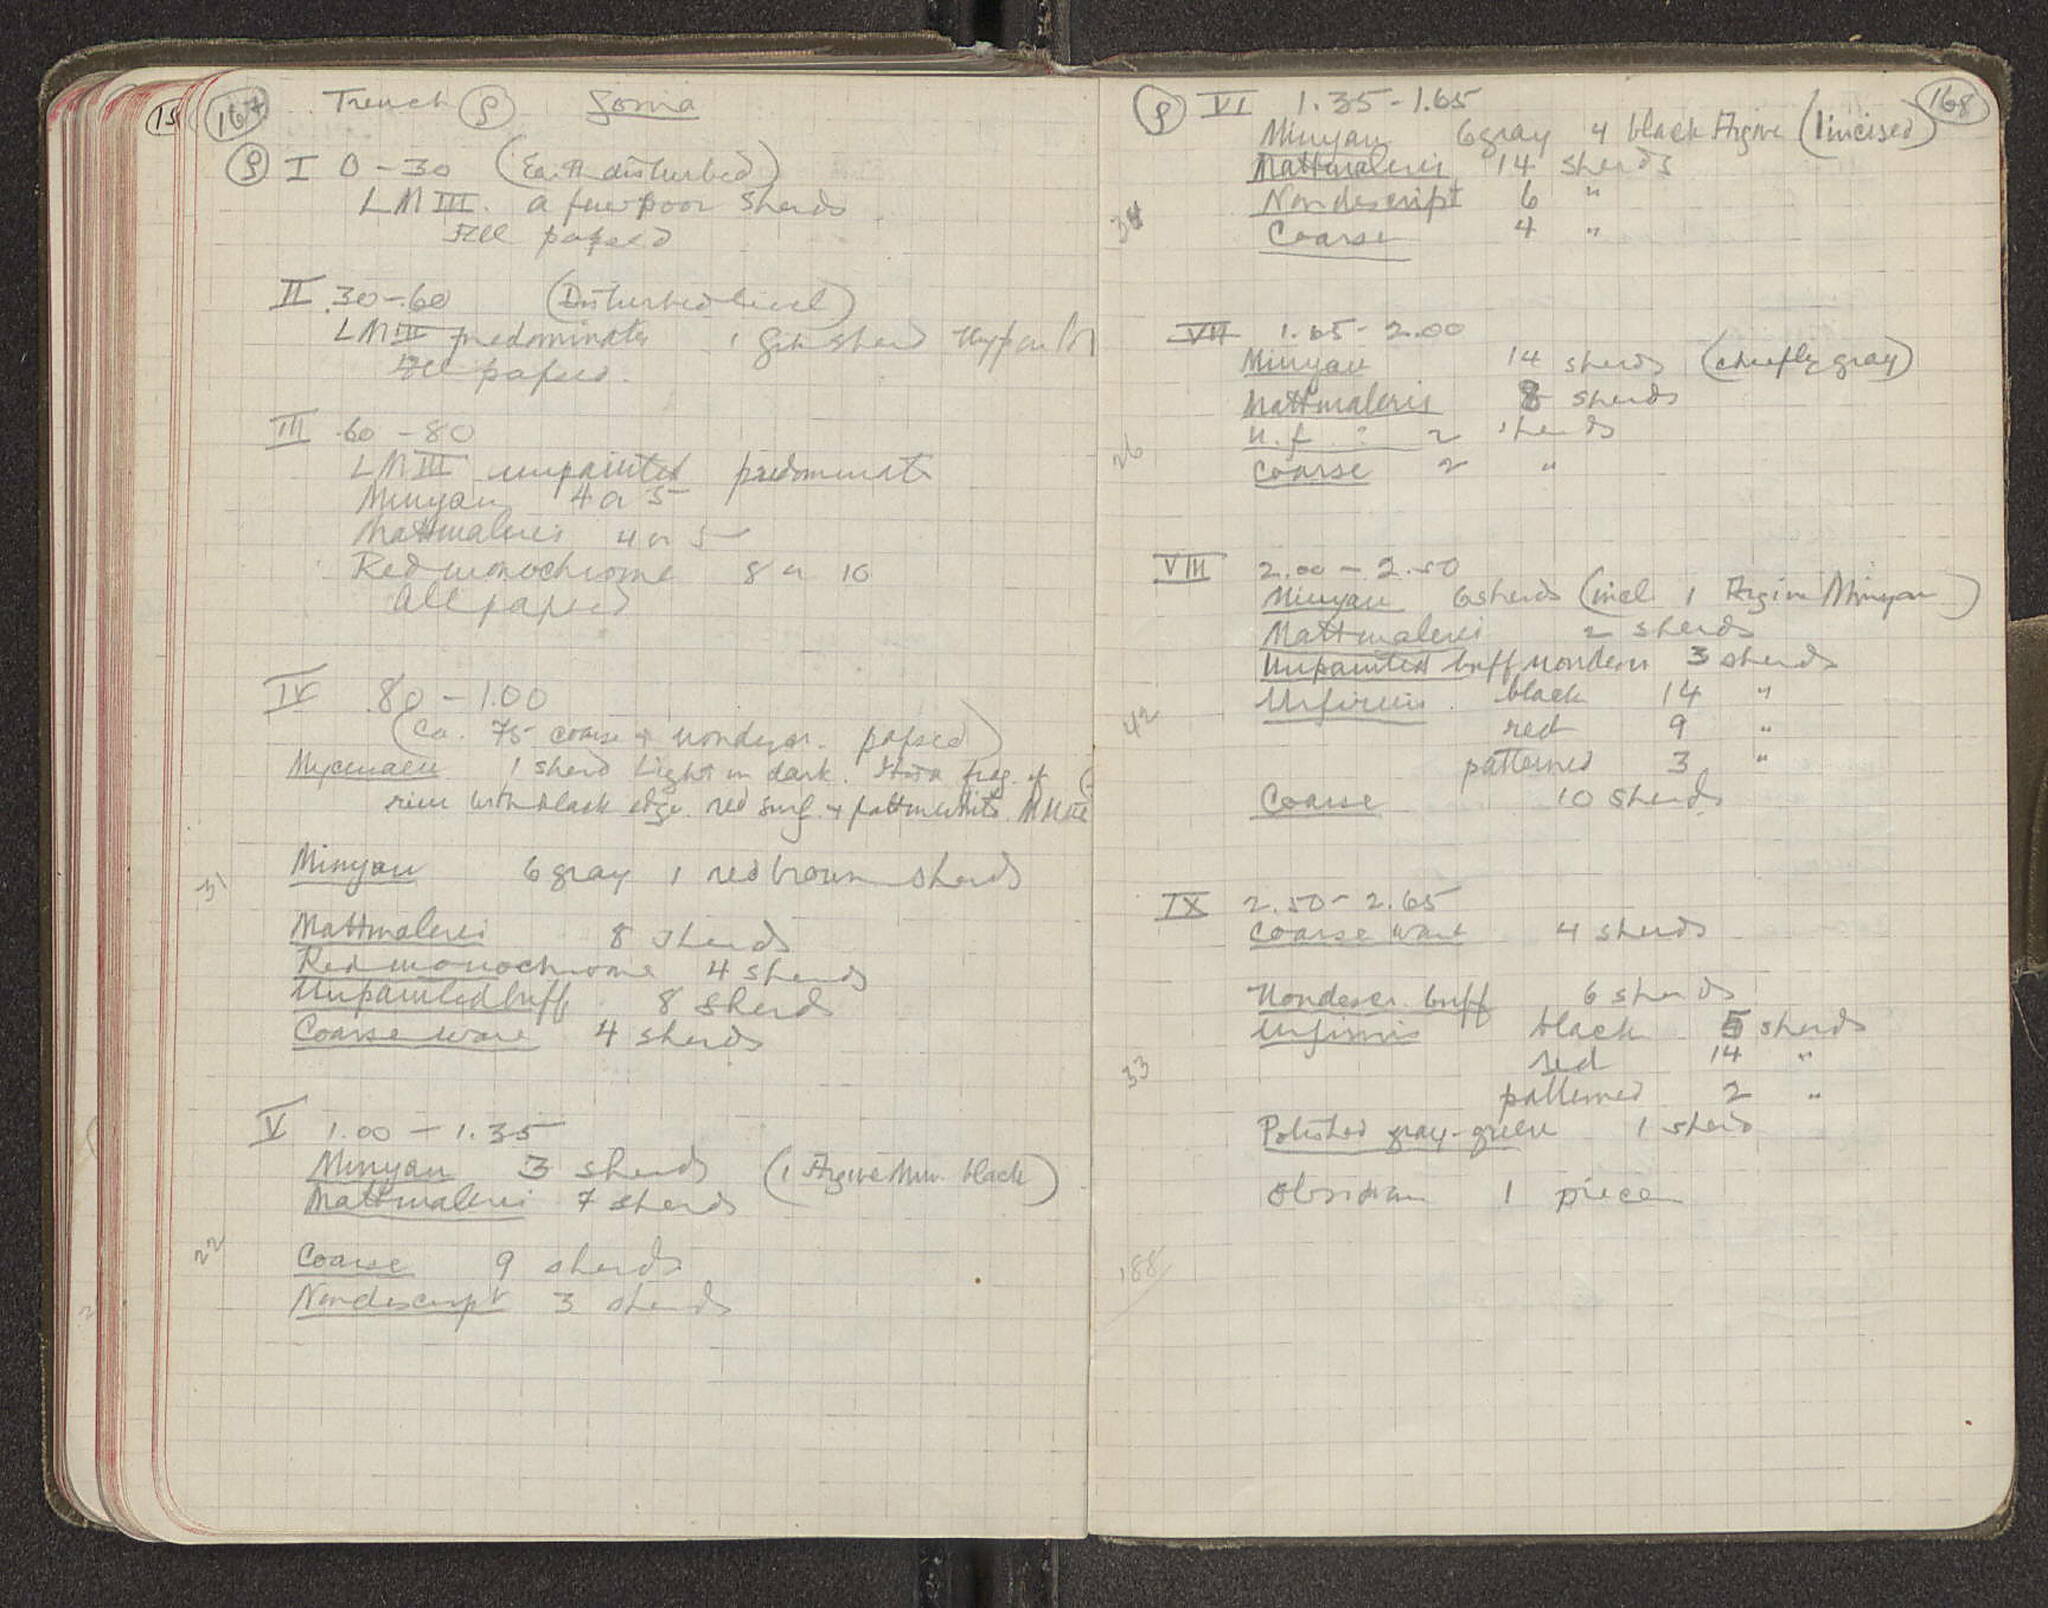 15
167
Trench S Gonia
S I 0 - 30 (Earth disturbed)
LM III. a few poor sherds
All papsed
II .30 - .60 (Disturbed level)
LM III predominates 1 sherd
All papsed.
III .60 - 80
LM III unpainted predominate
Minyan 4 or 5
Mattmalerei 4 or 5
Red monochrome 8 or 10
All papsed
IV .80 - 1.00
(Ca. 75 coarse + nondescr. papsed)
Mycenaean 1 sherd Light on dark. frag. of
rim with black edge. red surf. + patt in white.
31
Minyan 6 gray 1 red brown sherds
Mattmalerei 8 sherds
Red monochrome 4 sherds
Unpainted buff 8 sherds
Coarse ware 4 sherds
V 1.00 - 1.35
Minyan 3 sherds (1 Argive Min. black)
Mattmalerei 7 sherds
22
Coarse 9 sherds
Nondescript 3 sherds
168
S VI 1.35 - 1.65
Minyan 6 gray 4 black Argive (1 incised)
Mattmalerei 14 sherds
Nondescript 6 "
34
Coarse 4 "
VII 1.65 - 2.00
Minyan 14 sherds (chiefly gray)
Mattmalerei 8 sherds
U.f. : 2 sherds
26
Coarse 2 "
VIII 2.00 - 2.50
Minyan 6 sherds (incl. 1 Argive Minyan)
Mattmalerei 2 sherds
Unpainted buff nondescr 3 sherds
Urfirnis black 14 "
42
red 9 "
patterned 3 "
Coarse 10 sherds
IX 2.50 - 2.65
Coarse ware 4 sherds
Nondescr. buff 6 sherds
Urfirnis black 5 sherds
33
red 14 "
patterned 2 "
Polished gray-green 1 sherd
Obsidian 1 piece
188